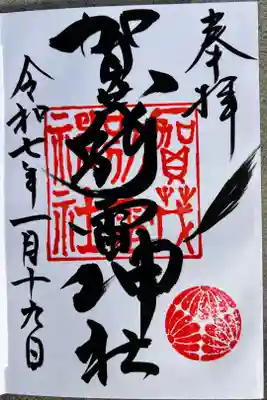 奉拝
賀茂別雷神社
令和七年一月十九日
賀茂
神社